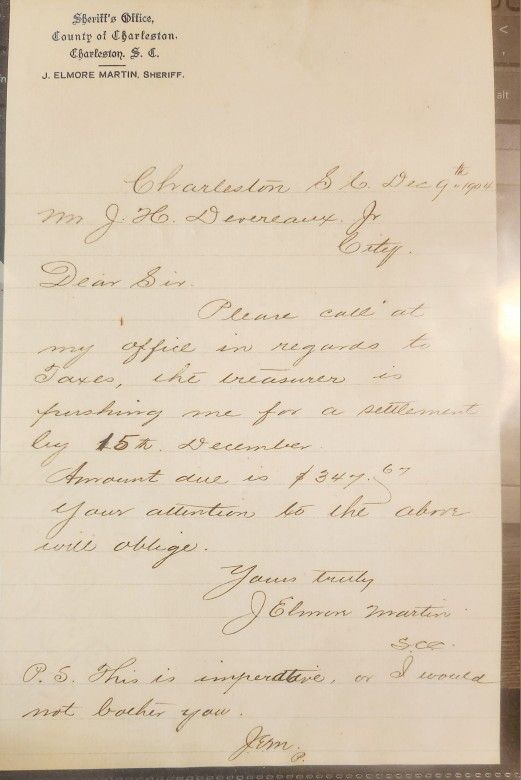 Sheriff's Office,
County of Charleston.
Charleston, S. C.
J. ELMORE MARTIN, SHERIFF.
Charleston S C. Dec 9th 1904
Mr J. H. Devereaux. Jr
City.
Dear Sir.
Please call at
my office in regards to
Taxes, the treasurer is
pushing me for a settlement
by 15th. December.
Amount due is $347.67
Your attention to the above
will oblige.
Yours truly
J Elmore Martin
S.C.C.
P.S. This is imperative, or I would
not bother you.
J.E.M.
alt